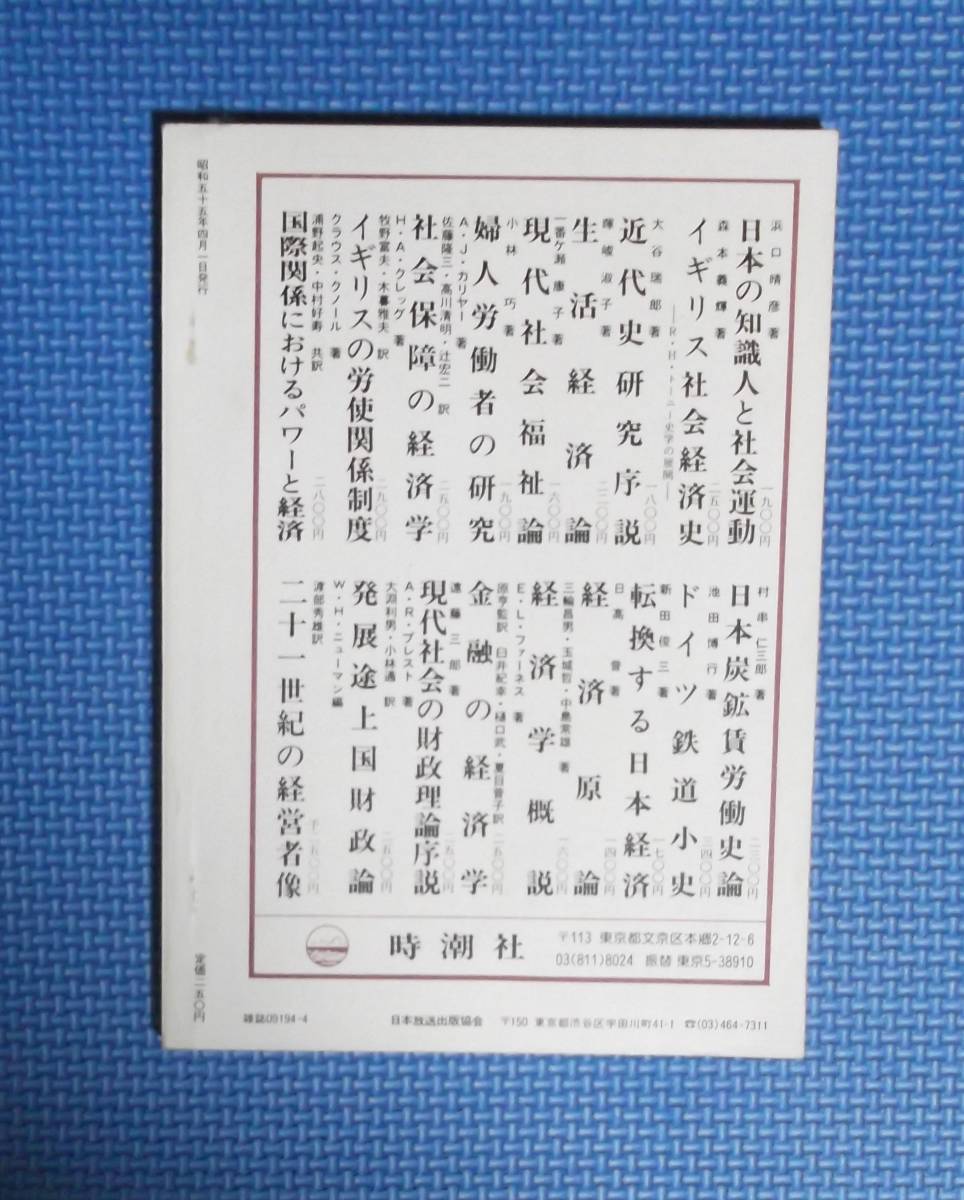 浜口晴彦 著
日本の知識人と社会運動
一九〇〇円
森本義輝 著
イギリス社会経済史
―R・H・トーニー史学の展開―
二五〇〇円
大谷瑞郎 著
近代史研究序説
一八〇〇円
暉峻淑子 著
生活経済論
二二〇〇円
一番ケ瀬康子 著
現代社会福祉論
一六〇〇円
小林巧 著
婦人労働者の研究
一九〇〇円
A・J・カリヤー 著
佐藤隆三・高川清明・辻宏二 訳
社会保障の経済学
二五〇〇円
H・A・クレッグ 著
牧野富夫・木暮雅夫 訳
イギリスの労使関係制度
二九〇〇円
クラウス・クノール 著
浦野起央・中村好寿 共訳
国際関係におけるパワーと経済
二八〇〇円
村串仁三郎 著
日本炭鉱賃労働史論
二三〇〇円
池田博行 著
ドイツ鉄道小史
二四〇〇円
新田俊三 著
転換する日本経済
一七〇〇円
日高普 著
経済原論
一四〇〇円
三輪昌男・玉城哲・中島常雄 著
経済学概説
一六〇〇円
E・L・ファーネス 著
原亨監訳 臼井紀幸・樋口武・夏目晉子訳
金融の経済学
二五〇〇円
遠藤三郎 著
現代社会の財政理論序説
二五〇〇円
A・R・プレスト 著
大淵利男・小林通 訳
発展途上国財政論
二五〇〇円
W・H・ニューマン編
渡部秀雄訳
二十一世紀の経営者像
時潮社
〒113 東京都文京区本郷2-12-6
03(811)8024 振替 東京5-38910
昭和五十五年四月一日発行
定価二五〇円
雑誌09194-4
日本放送出版協会 〒150 東京都渋谷区宇田川町41-1 ☎(03)464-7311